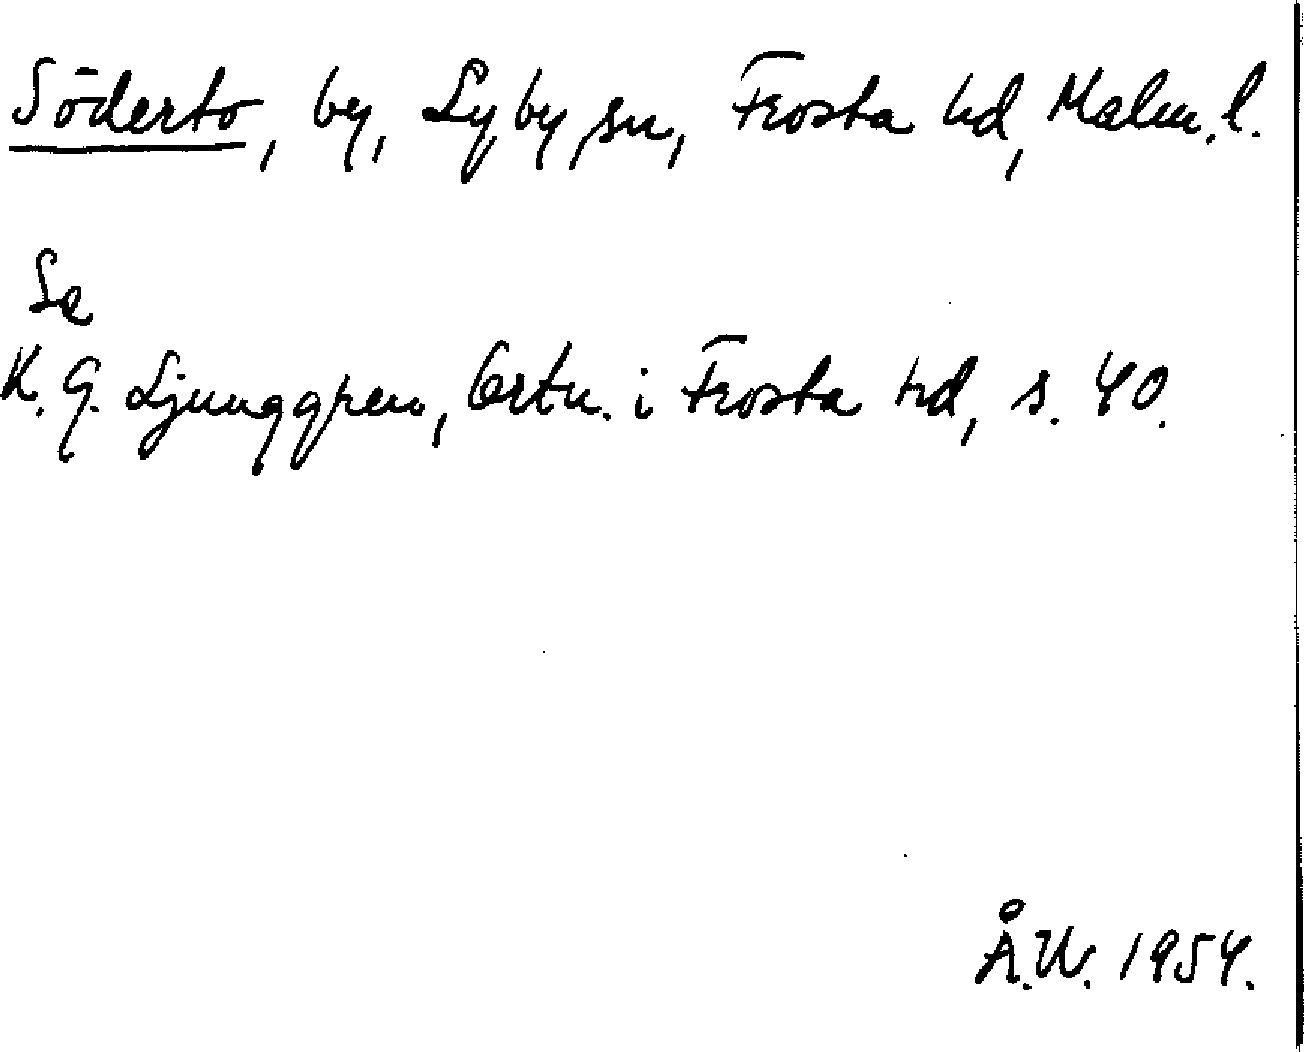 Söderto, by, Lyby sn, Frosta hd, Malm. l.
Se
K. G. Ljunggren, Ortn. i Frosta hd, s. 40.
Å.W. 1954.